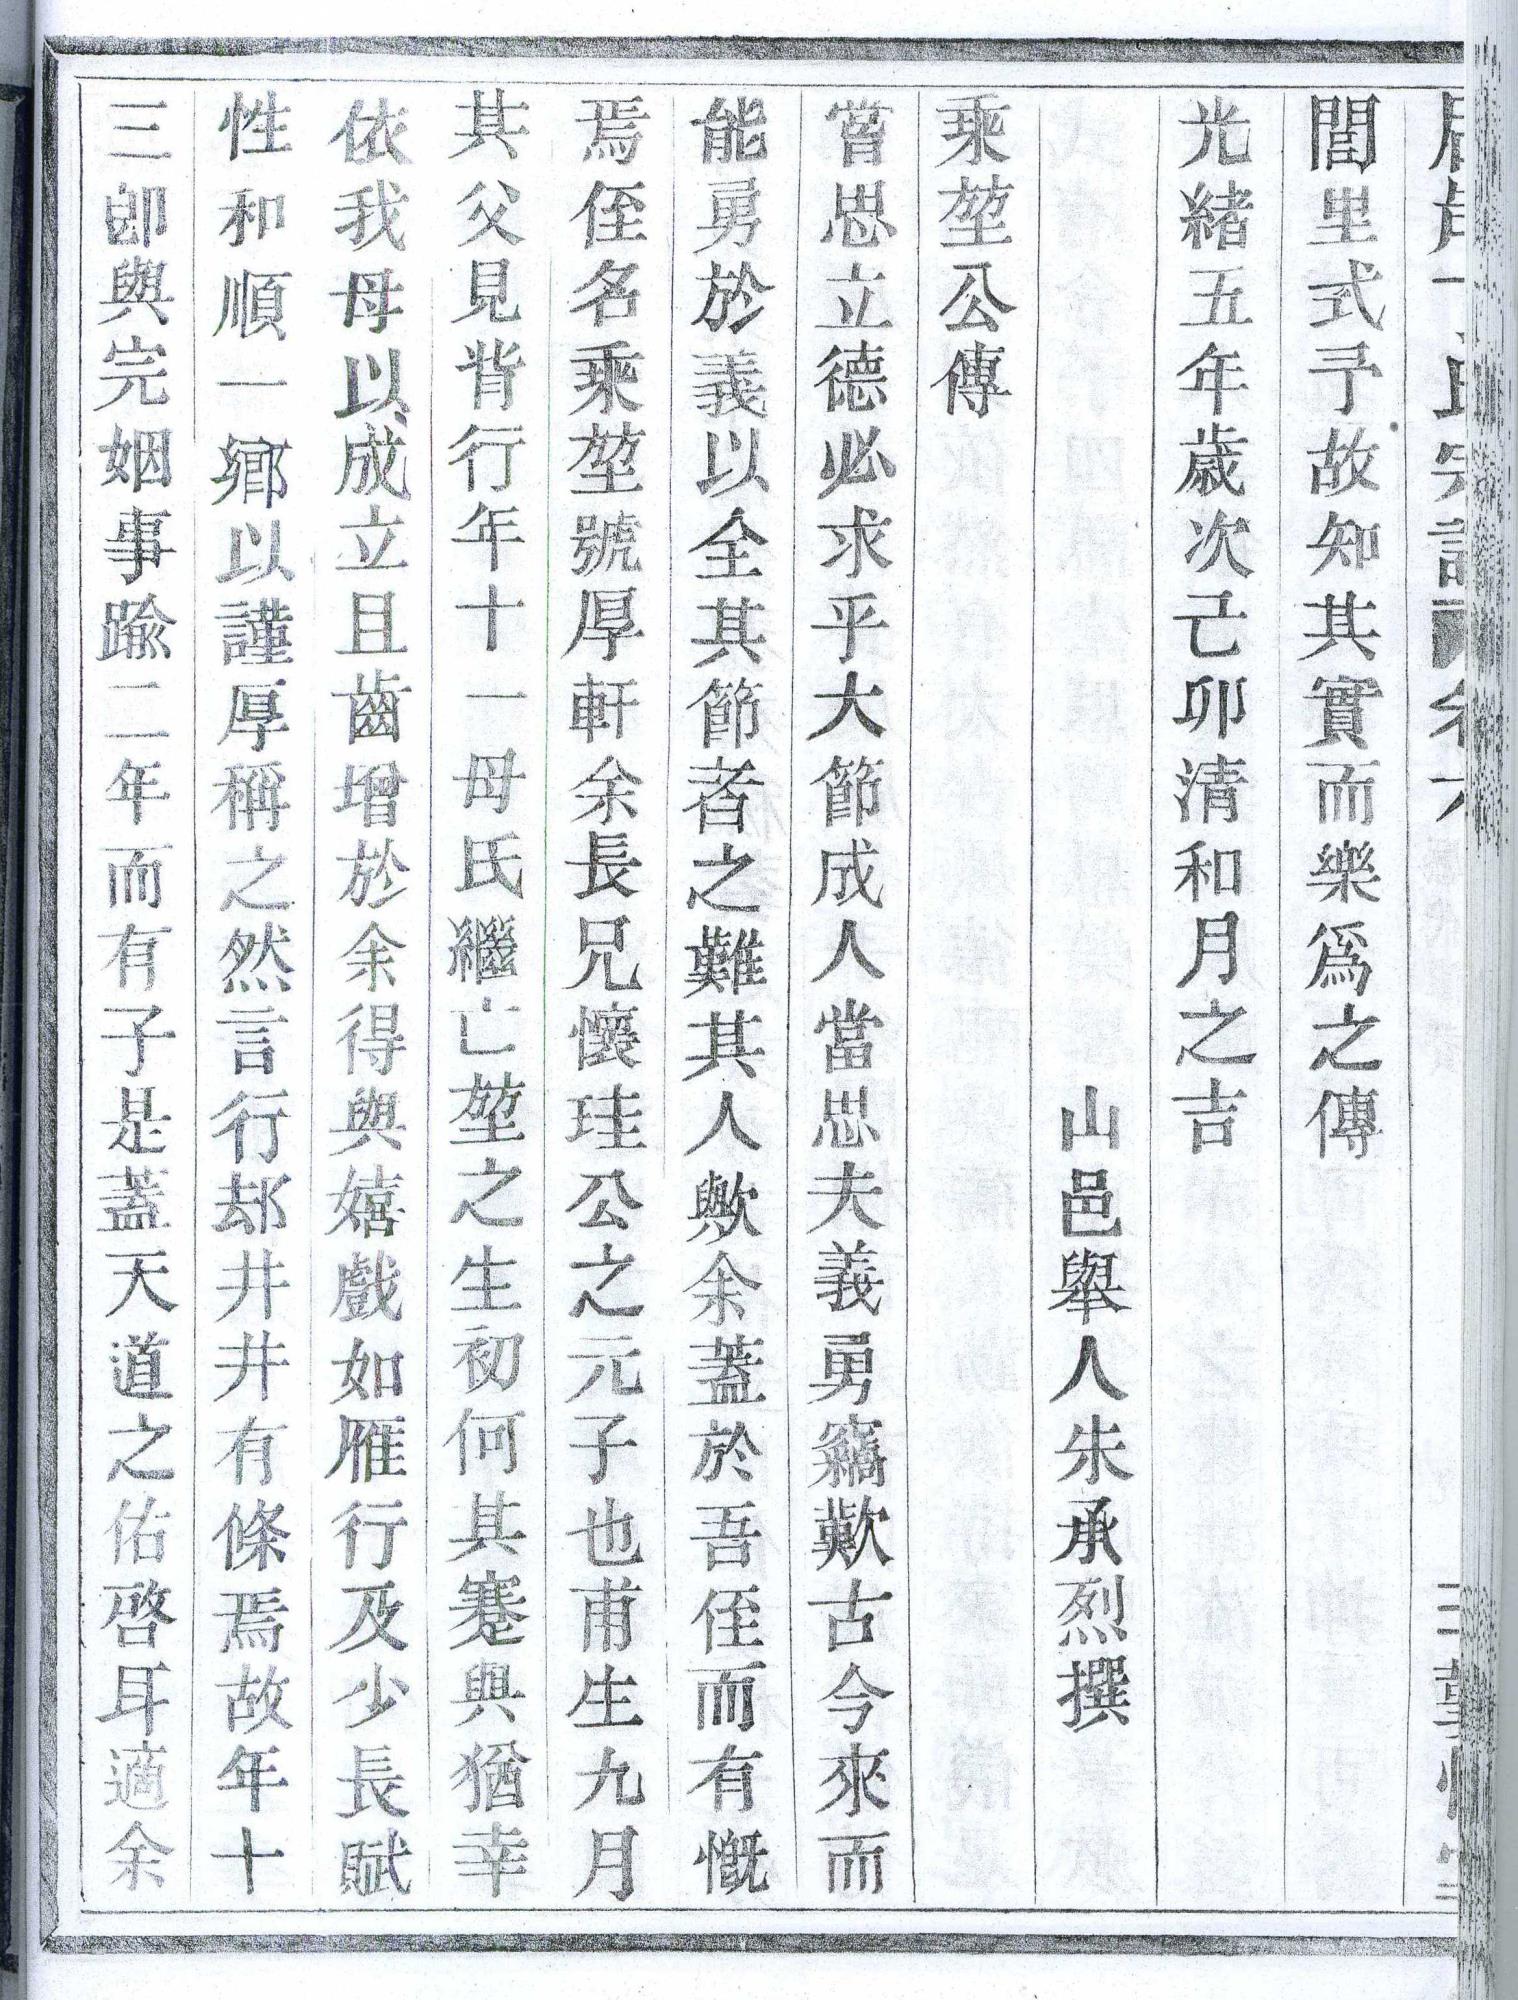 閭里式予故知其實而樂爲之傳
光緒五年歲次己卯清和月之吉
山邑舉人朱承烈撰
乘堃公傳
嘗思立德必求乎大節成人當思夫義勇竊歎古今來而
能勇於義以全其節者之難其人歟余蓋於吾侄而有慨
焉侄名乘堃號厚軒余長兄懷珪公之元子也甫生九月
其父見背行年十一母氏繼亡堃之生初何其蹇與猶幸
依我母以成立且齒增於余得與嬉戲如雁行及少長賦
性和順一鄉以謹厚稱之然言行却井井有條焉故年十
三卽與完姻事踰二年而有子是蓋天道之佑啓耳適余